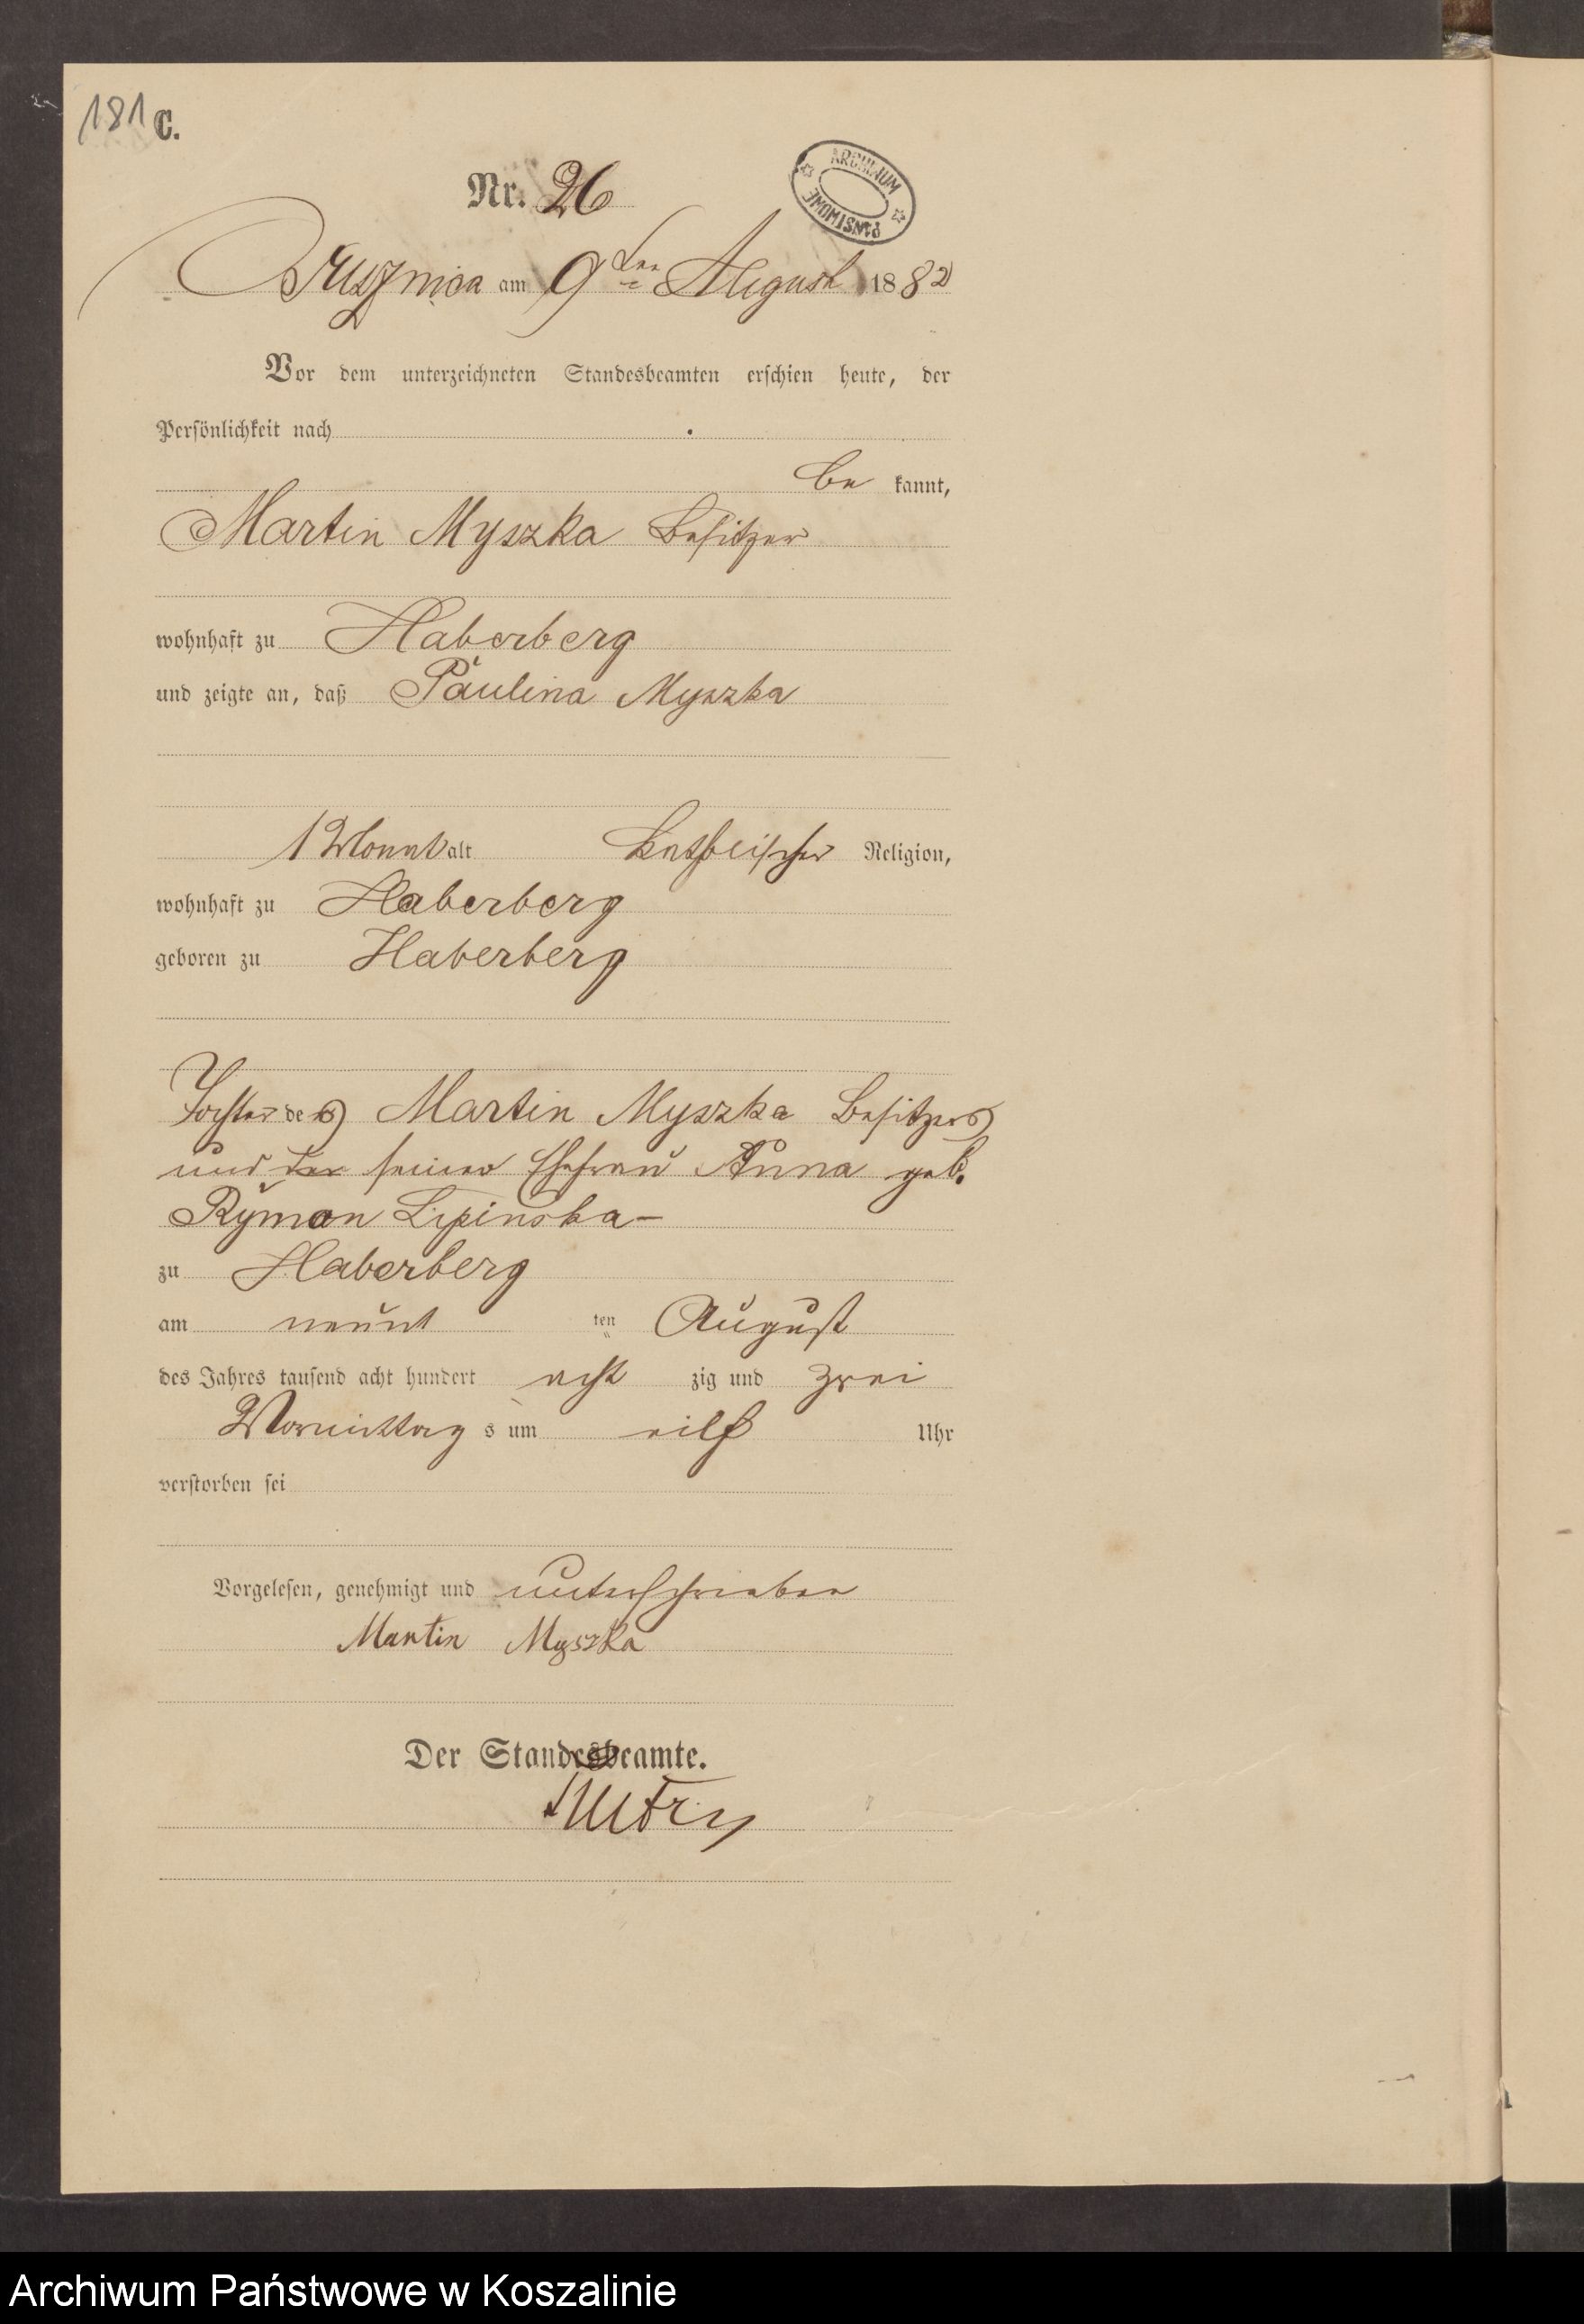 181 C.
Nr. 26
ARCHIWUM PAŃSTWOWE
am 9ten August 1882
Vor dem unterzeichneten Standesbeamten erschien heute, der
Persönlichkeit nach
be kannt,
Martin Myszka Besitzer
wohnhaft zu Haberberg
und zeigte an, daß Paulina Myszka
1 Monat alt katholischer Religion,
wohnhaft zu Haberberg
geboren zu Haberberg
Tochter des Martin Myszka Besitzers
und der seiner Ehefrau Anna geb.
Rymon Lipinska –
zu Haberberg
am neunt ten August
des Jahres tausend acht hundert acht zig und zwei
Vormittag s um eilf Uhr
verstorben sei
Vorgelesen, genehmigt und unterschrieben
Martin Myszka
Der Standesbeamte.
Archiwum Państwowe w Koszalinie